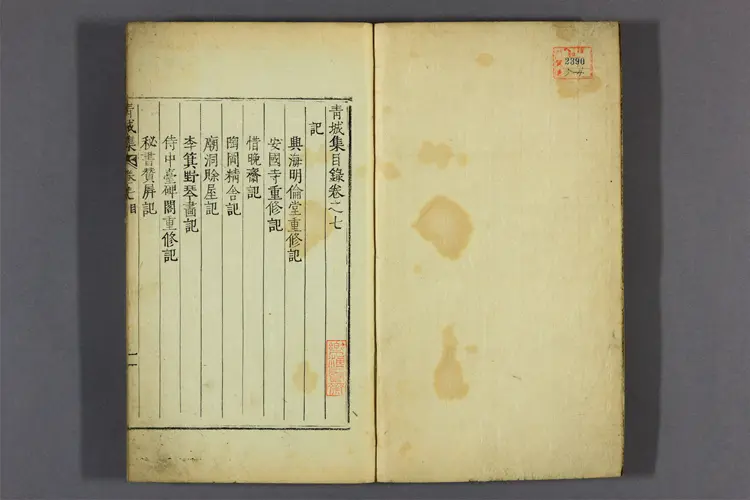 2390
青城集目錄卷之七
記
興海明倫堂重修記
安國寺重修記
惜晚齋記
陶閣精舍記
廟洞賖屋記
李箕野琴畵記
侍中臺碑閣重修記
秘書贊屏記
青城集